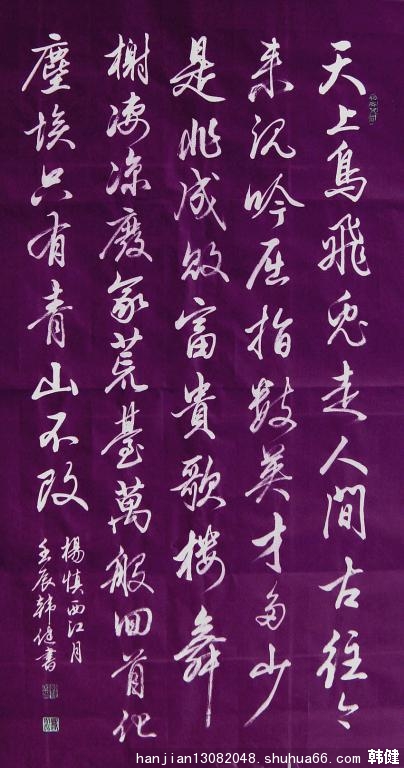 天上鳥飛兔走人間古往今
来沉吟屈指數英才多少
是非成敗富貴歌楼舞
榭凄凉廢冢荒臺萬般回首化
塵埃只有青山不改
楊慎西江月
壬辰韩健書
hanjian13082048.shuhua66.com
韩健